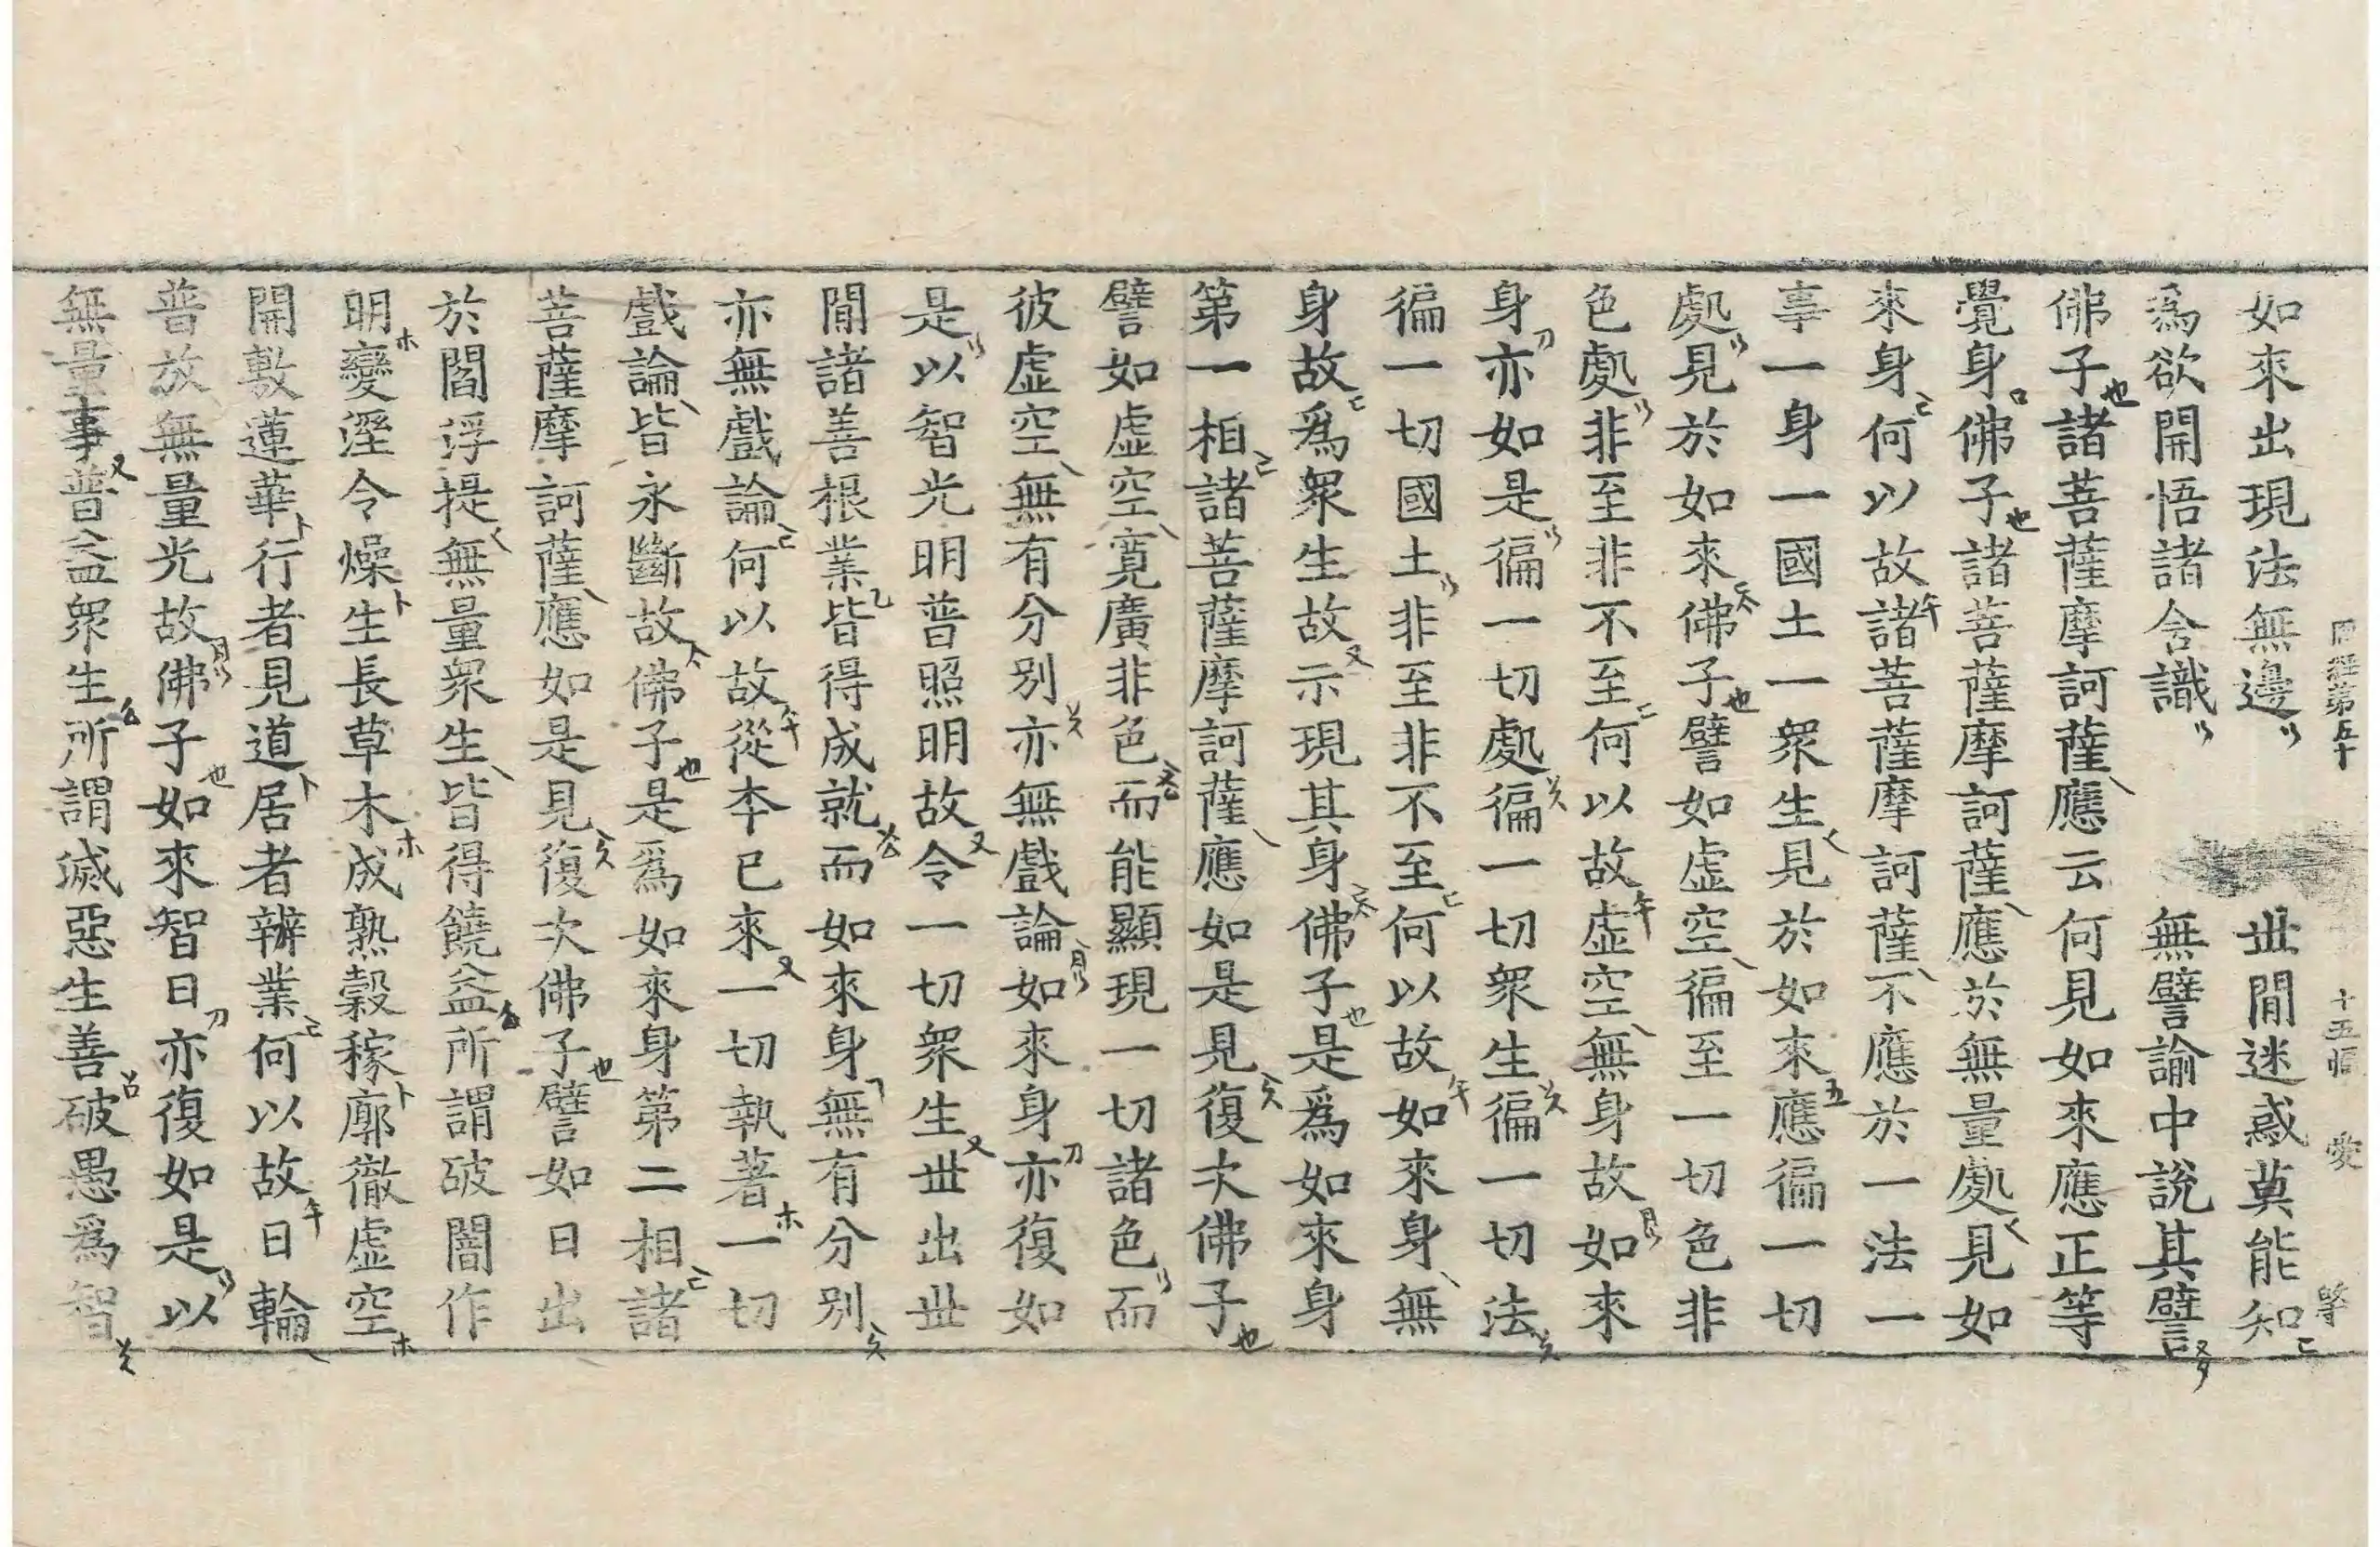 如來出現法無邊 世閒迷惑莫能知
爲欲開悟諸含識 無譬諭中說其譬
佛子諸菩薩摩訶薩應云何見如來應正等
覺身佛子諸菩薩摩訶薩應於無量處見如
來身何以故諸菩薩摩訶薩不應於一法一
事一身一國土一衆生見於如來應徧一切
處見於如來佛子譬如虛空徧至一切色非
色處非至非不至何以故虛空無身故如來
身亦如是徧一切處徧一切衆生徧一切法
徧一切國土非至非不至何以故如來身無
身故爲衆生故示現其身佛子是爲如來身
第一相諸菩薩摩訶薩應如是見復次佛子
譬如虛空寬廣非色而能顯現一切諸色而
彼虛空無有分別亦無戲論如來身亦復如
是以智光明普照明故令一切衆生世出世
閒諸善根業皆得成就而如來身無有分別
亦無戲論何以故從本已來一切執著一切
戲論皆永斷故佛子是爲如來身第二相諸
菩薩摩訶薩應如是見復次佛子譬如日出
於閻浮提無量衆生皆得饒益所謂破闇作
明變溼令燥生長草木成熟穀稼廓徹虛空
開敷蓮華行者見道居者辦業何以故日輪
普放無量光故佛子如來智日亦復如是以
無量事普益衆生所謂滅惡生善破愚爲智